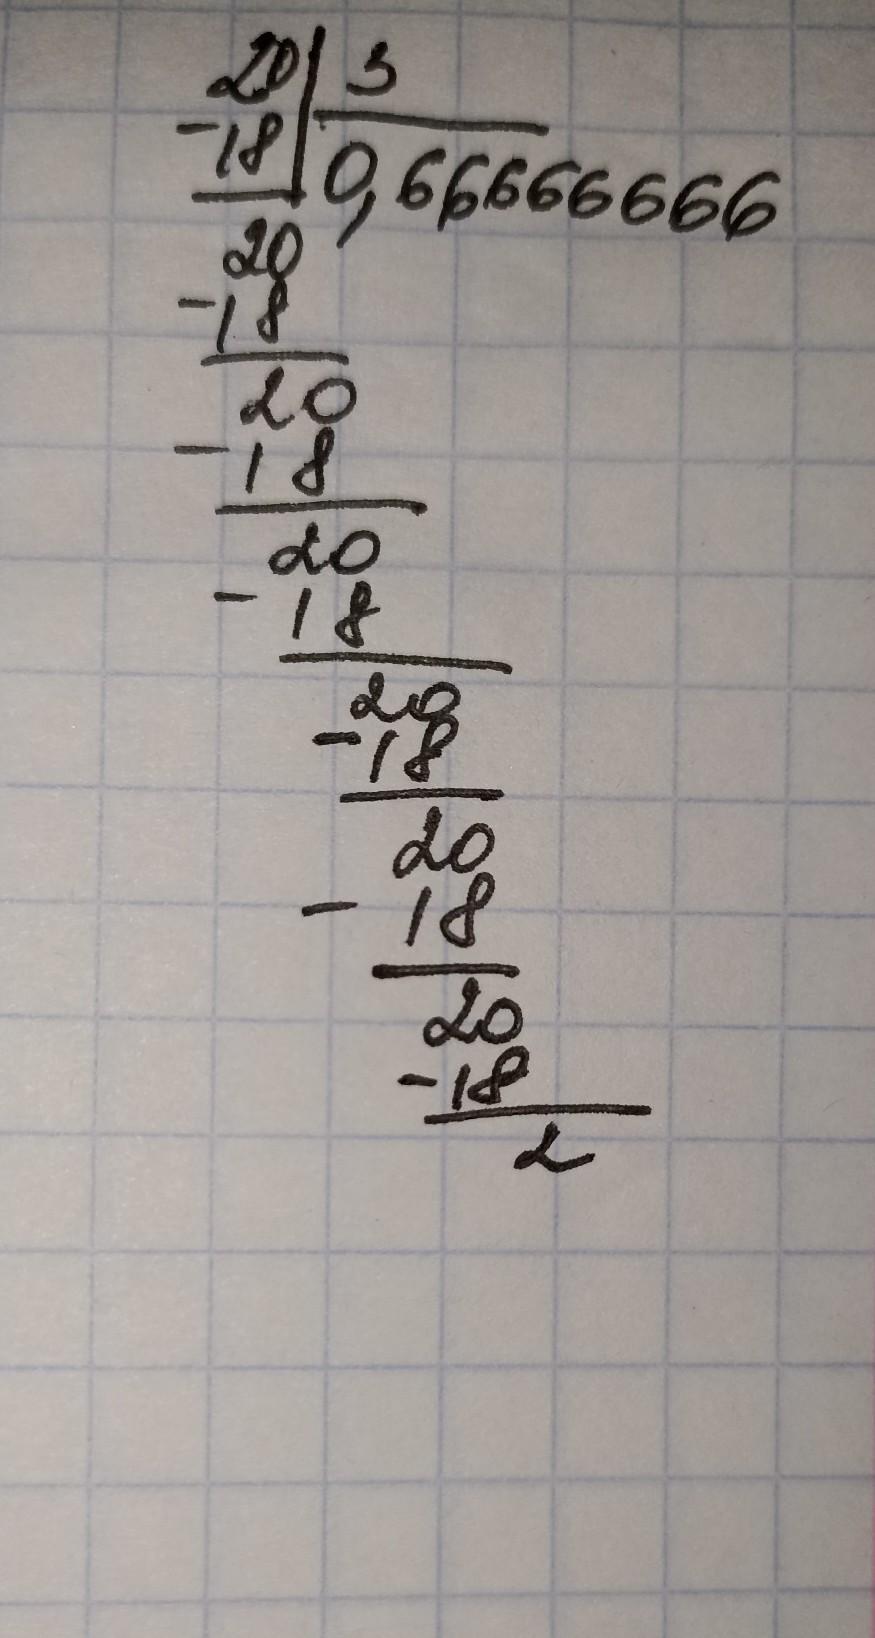 20 3
-18 0,66666666
20
-18
20
-18
20
-18
20
-18
20
-18
20
-18
2